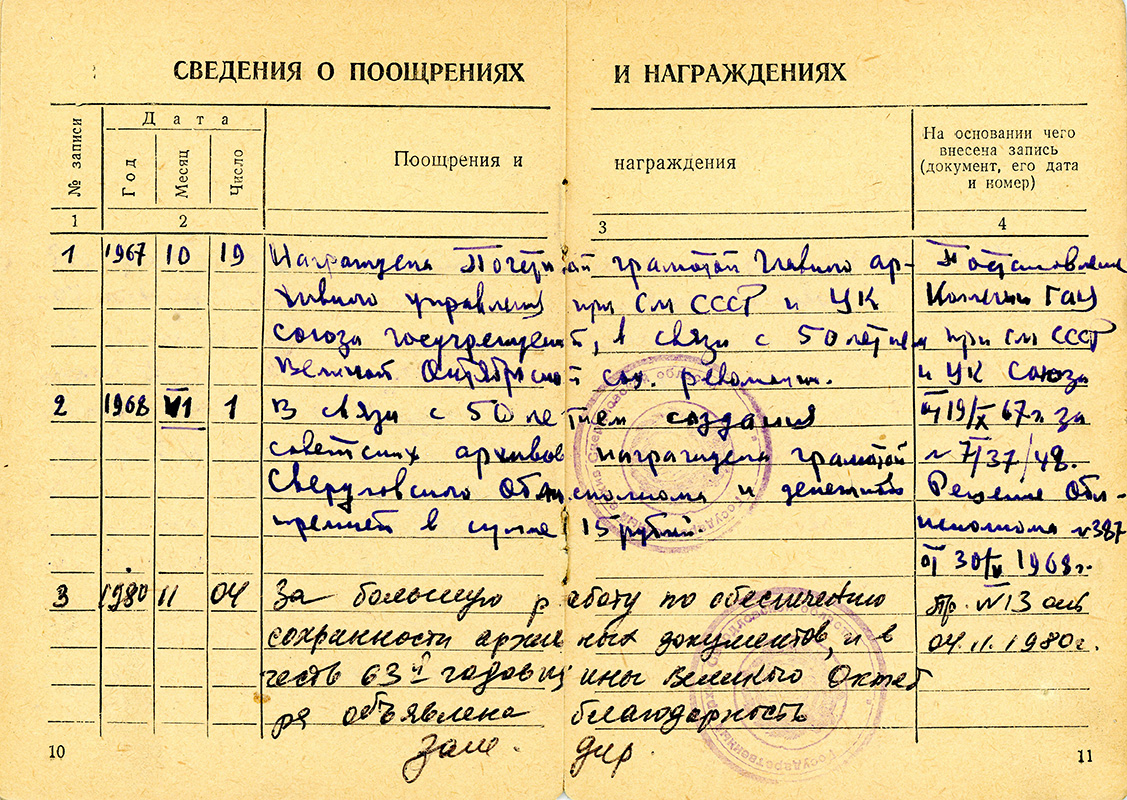 СВЕДЕНИЯ О ПООЩРЕНИЯХ И НАГРАЖДЕНИЯХ
№ записи
Дата
Год
Месяц
Число
Поощрения и награждения
На основании чего
внесена запись
(документ, его дата
и номер)
1 2 3 4
1 1967 10 19 Награждена Почетной грамотой Главного ар-
хивного управления при СМ СССР и ЦК
союза госучреждений, в связи с 50 летием
Великой Октябрьской соц. революции.
Постановление
Коллегии ГАУ
при СМ СССР
и ЦК Союза
от 19/X 67 г. за
№ 7/37/48.
2 1968 VI 1 В связи с 50 летием создания
советских архивов награждена грамотой
Свердловского Облисполкома и денежной
премией в сумме 15 рублей.
Решение Обл-
исполкома №387
от 30/V 1968 г.
3 1980 11 04 За большую работу по обеспечению
сохранности архивных документов, и в
честь 63й годовщины Великого Октяб
ря объявлена благодарность
Пр. №13
04.11.1980г.
Зам. дир.
10
11